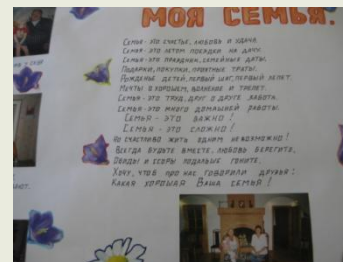 МОЯ СЕМЬЯ.
СЕМЬЯ - ЭТО СЧАСТЬЕ, ЛЮБОВЬ И УДАЧА,
СЕМЬЯ - ЭТО ЛЕТОМ ПОЕЗДКИ НА ДАЧУ.
СЕМЬЯ - ЭТО ПРАЗДНИК, СЕМЕЙНЫЕ ДАТЫ,
ПОДАРКИ, ПОКУПКИ, ПРИЯТНЫЕ ТРАТЫ.
РОЖДЕНЬЕ ДЕТЕЙ, ПЕРВЫЙ ШАГ, ПЕРВЫЙ ЛЕПЕТ,
МЕЧТЫ О ХОРОШЕМ, ВОЛНЕНИЕ И ТРЕПЕТ.
СЕМЬЯ - ЭТО ТРУД, ДРУГ О ДРУГЕ ЗАБОТА,
СЕМЬЯ - ЭТО МНОГО ДОМАШНЕЙ РАБОТЫ.
СЕМЬЯ - ЭТО ВАЖНО!
СЕМЬЯ - ЭТО СЛОЖНО!
НО СЧАСТЛИВО ЖИТЬ ОДНИМ НЕВОЗМОЖНО!
ВСЕГДА БУДЬТЕ ВМЕСТЕ, ЛЮБОВЬ БЕРЕГИТЕ,
ОБИДЫ И ССОРЫ ПОДАЛЬШЕ ГОНИТЕ,
ХОЧУ, ЧТОБ ПРО НАС ГОВОРИЛИ ДРУЗЬЯ:
КАКАЯ ХОРОШАЯ ВАША СЕМЬЯ!